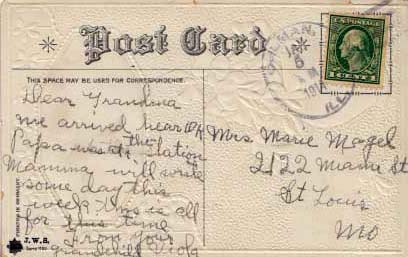 Post Card
THIS SPACE MAY BE USED FOR CORRESPONDENCE.
U.S. POSTAGE
1 CENT 1
TILLMAN,
JAN
5
M
191
ILL.
Dear Grandma
we arrived hear O.K.
Papa was at the Station
Mamma will write
some day this
week this is all
for this time
From your
grandchild Viola
Mrs Marie Magel
2122 Miami St
St Louis
Mo
PRINTED IN GERMANY
J.W.B.